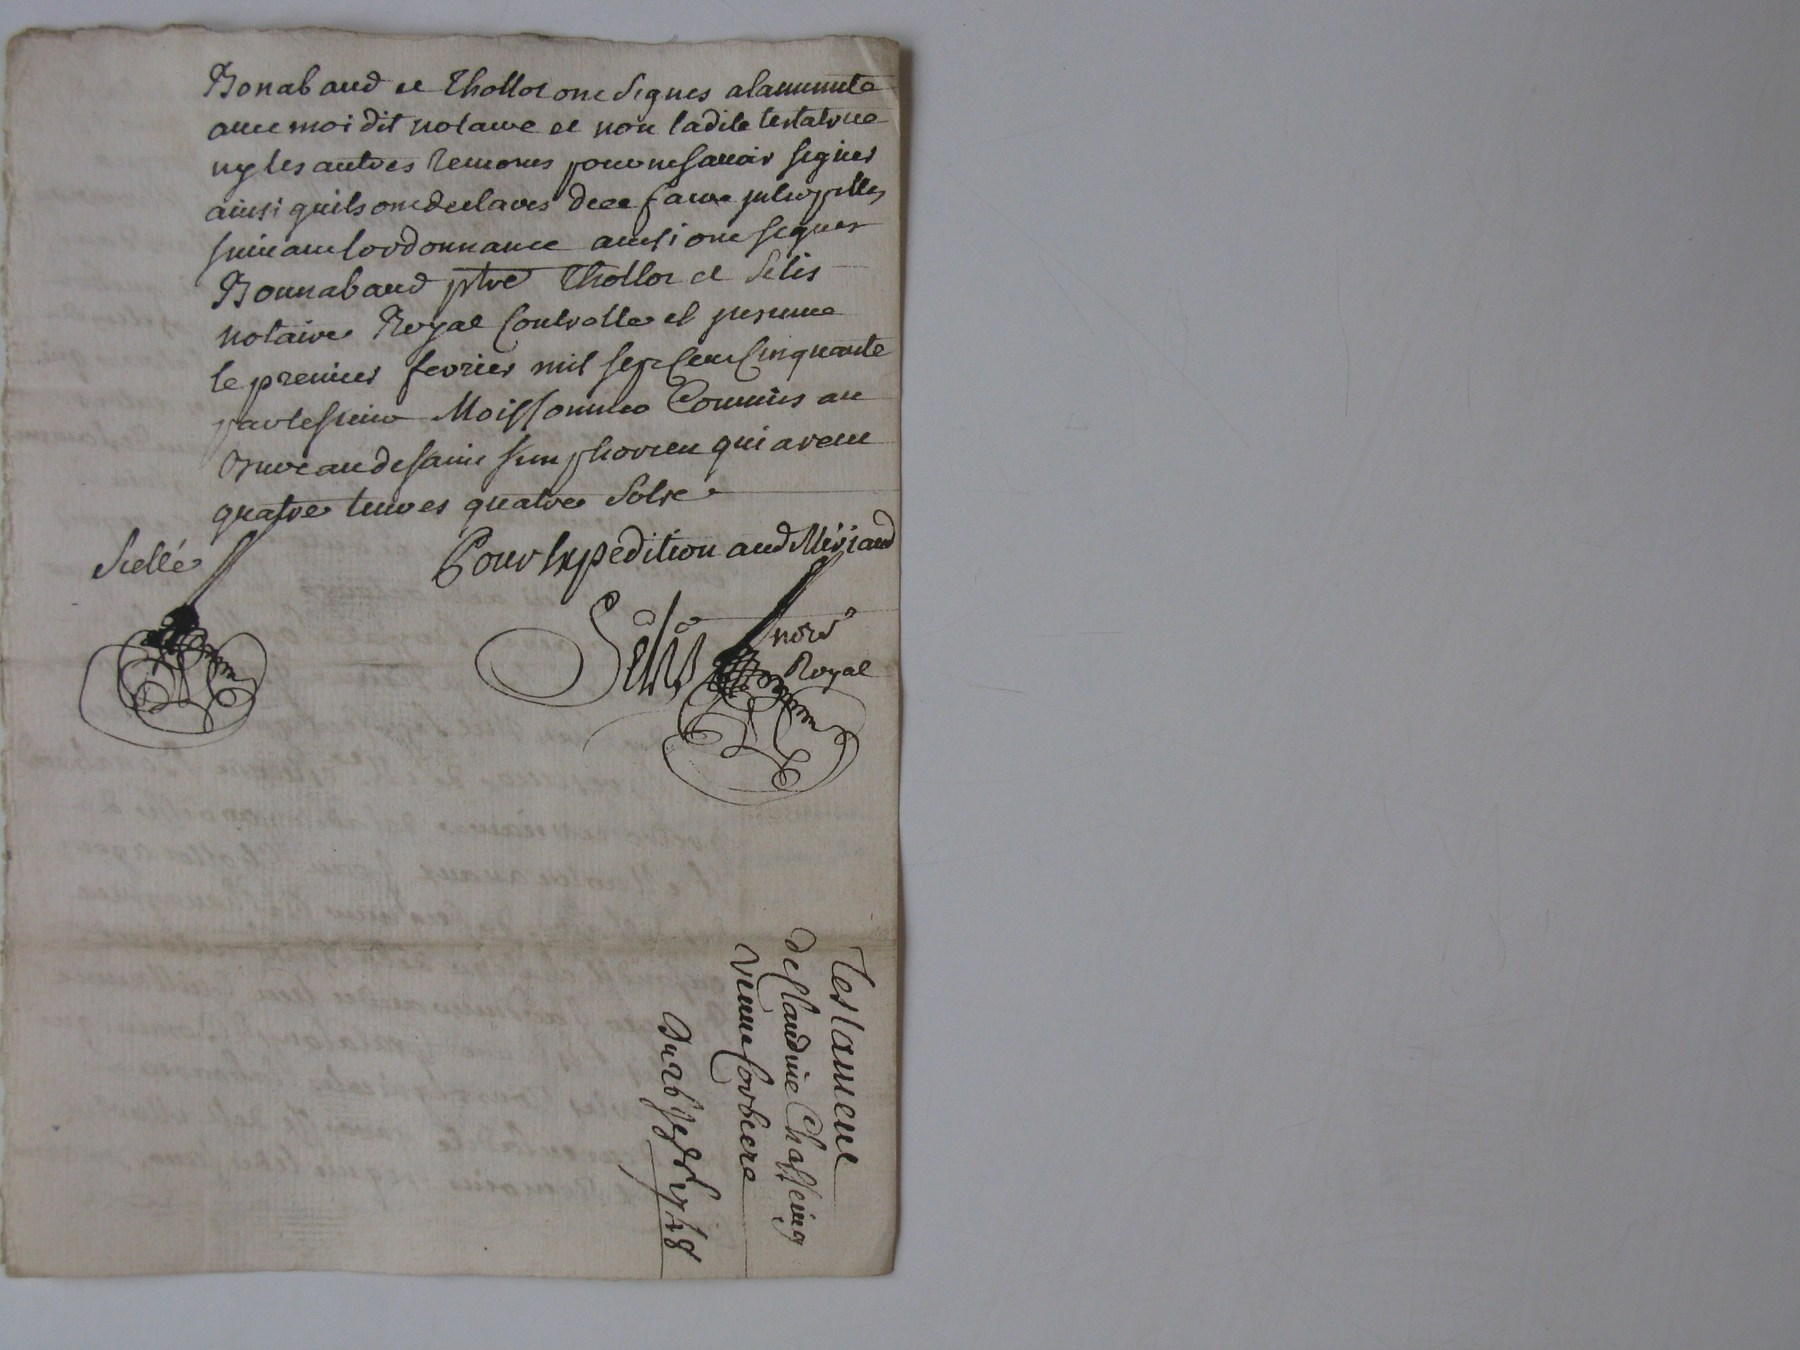 Bonabaud et Thollot ont signes a la minutte
avec moi dit notaire et non ladite testatrice
ny les autres temoins pour ne savoir signer
ainsi quils ont declares de ce faire
suivant lordonnance ainsi ont signes
Bonnabaud ptre Thollot et Selis
notaire Royal Controlle et
le premier fevrier mil sept Cent Cinquante
par le sieur Moissonnier Commis au
Bureau de saint simphorien qui a receu
quatre livres quatre Sols
Scellé
Pour Expedition aud Mériaud
Selis nore
Royal
Testament
de Claudine Chasseing
veuve Corbiere
Du 26